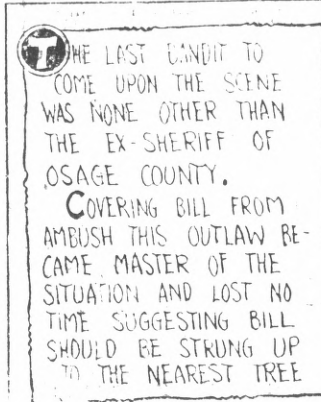 THE LAST BANDIT TO
COME UPON THE SCENE
WAS NONE OTHER THAN
THE EX-SHERIFF OF
OSAGE COUNTY.
COVERING BILL FROM
AMBUSH THIS OUTLAW BE-
CAME MASTER OF THE
SITUATION AND LOST NO
TIME SUGGESTING BILL
SHOULD BE STRUNG UP
TO THE NEAREST TREE